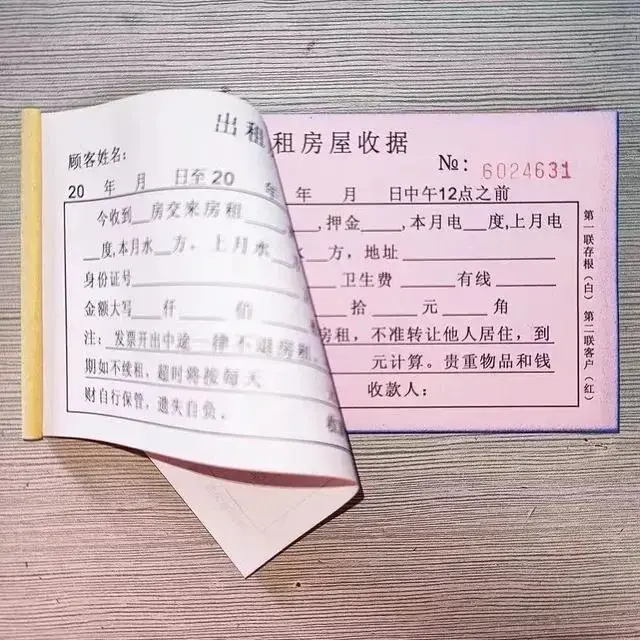 出租 租房屋收据
顾客姓名: №: 6024631
20 年 月 日至20 年 年 月 日中午12点之前
今收到__房交来房租____, 押金____, 本月电__度,上月电
__度,本月水__方, 上月水__水__方, 地址____
身份证号____卫生费____有线____
金额大写__仟__佰__拾__元__角
注: 发票开出中途一律不退房租, 房租, 不准转让他人居住, 到
期如不续租, 超时将按每天 元计算。贵重物品和钱
财自行保管, 遗失自负。 收款人:
第一联存根(白) 第二联客户(红)